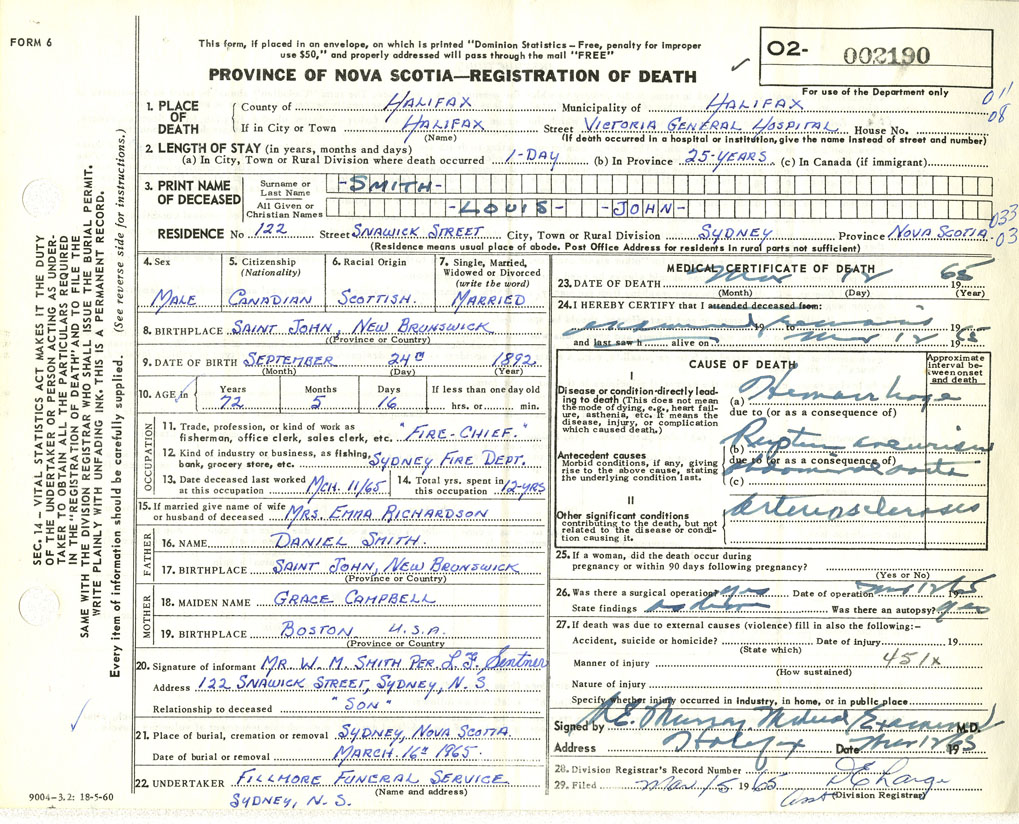 FORM 6
This form, if placed in an envelope, on which is printed "Dominion Statistics – Free, penalty for improper
use $50," and properly addressed will pass through the mail "FREE"
PROVINCE OF NOVA SCOTIA—REGISTRATION OF DEATH
O2- 002190
For use of the Department only
011
08
1. PLACE OF DEATH
County of HALIFAX Municipality of HALIFAX
If in City or Town HALIFAX Street VICTORIA GENERAL HOSPITAL House No.
(Name) (If death occurred in a hospital or institution, give the name instead of street and number)
2. LENGTH OF STAY (in years, months and days)
(a) In City, Town or Rural Division where death occurred 1-DAY (b) In Province 25-YEARS (c) In Canada (if immigrant)
3. PRINT NAME OF DECEASED
Surname or Last Name -SMITH-
All Given or Christian Names -LOUIS- -JOHN-
033
03
RESIDENCE No 122 Street SNAWICK STREET City, Town or Rural Division SYDNEY Province NOVA SCOTIA.
(Residence means usual place of abode. Post Office Address for residents in rural parts not sufficient)
4. Sex
MALE
5. Citizenship
(Nationality)
CANADIAN
6. Racial Origin
SCOTTISH.
7. Single, Married, Widowed or Divorced
(write the word)
MARRIED
8. BIRTHPLACE SAINT JOHN, NEW BRUNSWICK
(Province or Country)
9. DATE OF BIRTH SEPTEMBER 24th 1892
(Month) (Day) (Year)
10. AGE in Years Months Days If less than one day old
72 5 16 hrs. or min.
OCCUPATION
11. Trade, profession, or kind of work as
fisherman, office clerk, sales clerk, etc. "FIRE-CHIEF."
12 Kind of industry or business, as fishing,
bank, grocery store, etc. SYDNEY FIRE DEPT.
13. Date deceased last worked
at this occupation MCH. 11/65
14. Total yrs. spent in
this occupation 12-YRS
15. If married give name of wife
or husband of deceased MRS. EMMA RICHARDSON
FATHER
16. NAME DANIEL SMITH.
17. BIRTHPLACE SAINT JOHN, NEW BRUNSWICK
(Province or Country)
MOTHER
18. MAIDEN NAME GRACE CAMPBELL
19. BIRTHPLACE BOSTON U.S.A.
(Province or Country
20. Signature of informant MR. W. M. SMITH PER.
Address 122 SNAWICK STREET, SYDNEY, N. S.
Relationship to deceased "SON"
21. Place of burial, cremation or removal SYDNEY, NOVA SCOTIA.
Date of burial or removal MARCH 16th 1965.
22. UNDERTAKER FILLMORE FUNERAL SERVICE
(Name and address)
SYDNEY, N. S.
9004-3.2: 18-5-60
MEDICAL CERTIFICATE OF DEATH
23. DATE OF DEATH Mar 12 1965
(Month) (Day) (Year)
24. I HEREBY CERTIFY that I attended deceased from:
examined 19 to remains 19
and last saw h alive on Mar 12 1965
CAUSE OF DEATH
Approximate interval between onset and death
I
Disease or condition directly leading to death (This does not mean the mode of dying, e.g., heart failure, asthenia, etc. It means the disease, injury, or complication which caused death.)
(a) Hemorrhage
due to (or as a consequence of)
Antecedent causes
Morbid conditions, if any, giving rise to the above cause, stating the underlying condition last.
(b) Rupture aneurism
due to (or as a consequence of)
abdominal aorta
(c)
II
Other significant conditions
contributing to the death, but not related to the disease or condition causing it.
arteriosclerosis
25. If a woman, did the death occur during
pregnancy or within 90 days following pregnancy?
(Yes or No)
26. Was there a surgical operation? yes Date of operation Mar 12 1965
State findings as above Was there an autopsy? yes
27. If death was due to external causes (violence) fill in also the following:-
Accident, suicide or homicide? Date of injury 19
(State which)
Manner of injury 451x
(How sustained)
Nature of injury
Specify whether injury occurred in industry, in home, or in public place
Signed by Murray Medical Examiner M.D.
Address Halifax Date Mar 12 1965
28. Division Registrar's Record Number
29. Filed Mar 15 1965
(Division Registrar)
SEC. 14 – VITAL STATISTICS ACT MAKES IT THE DUTY
OF THE UNDERTAKER OR PERSON ACTING AS UNDER-
TAKER TO OBTAIN ALL THE PARTICULARS REQUIRED
IN THE "REGISTRATION OF DEATH" AND TO FILE THE
SAME WITH THE DIVISION REGISTRAR WHO SHALL ISSUE THE BURIAL PERMIT.
WRITE PLAINLY WITH UNFADING INK. THIS IS A PERMANENT RECORD.
Every item of information should be carefully supplied. (See reverse side for instructions.)